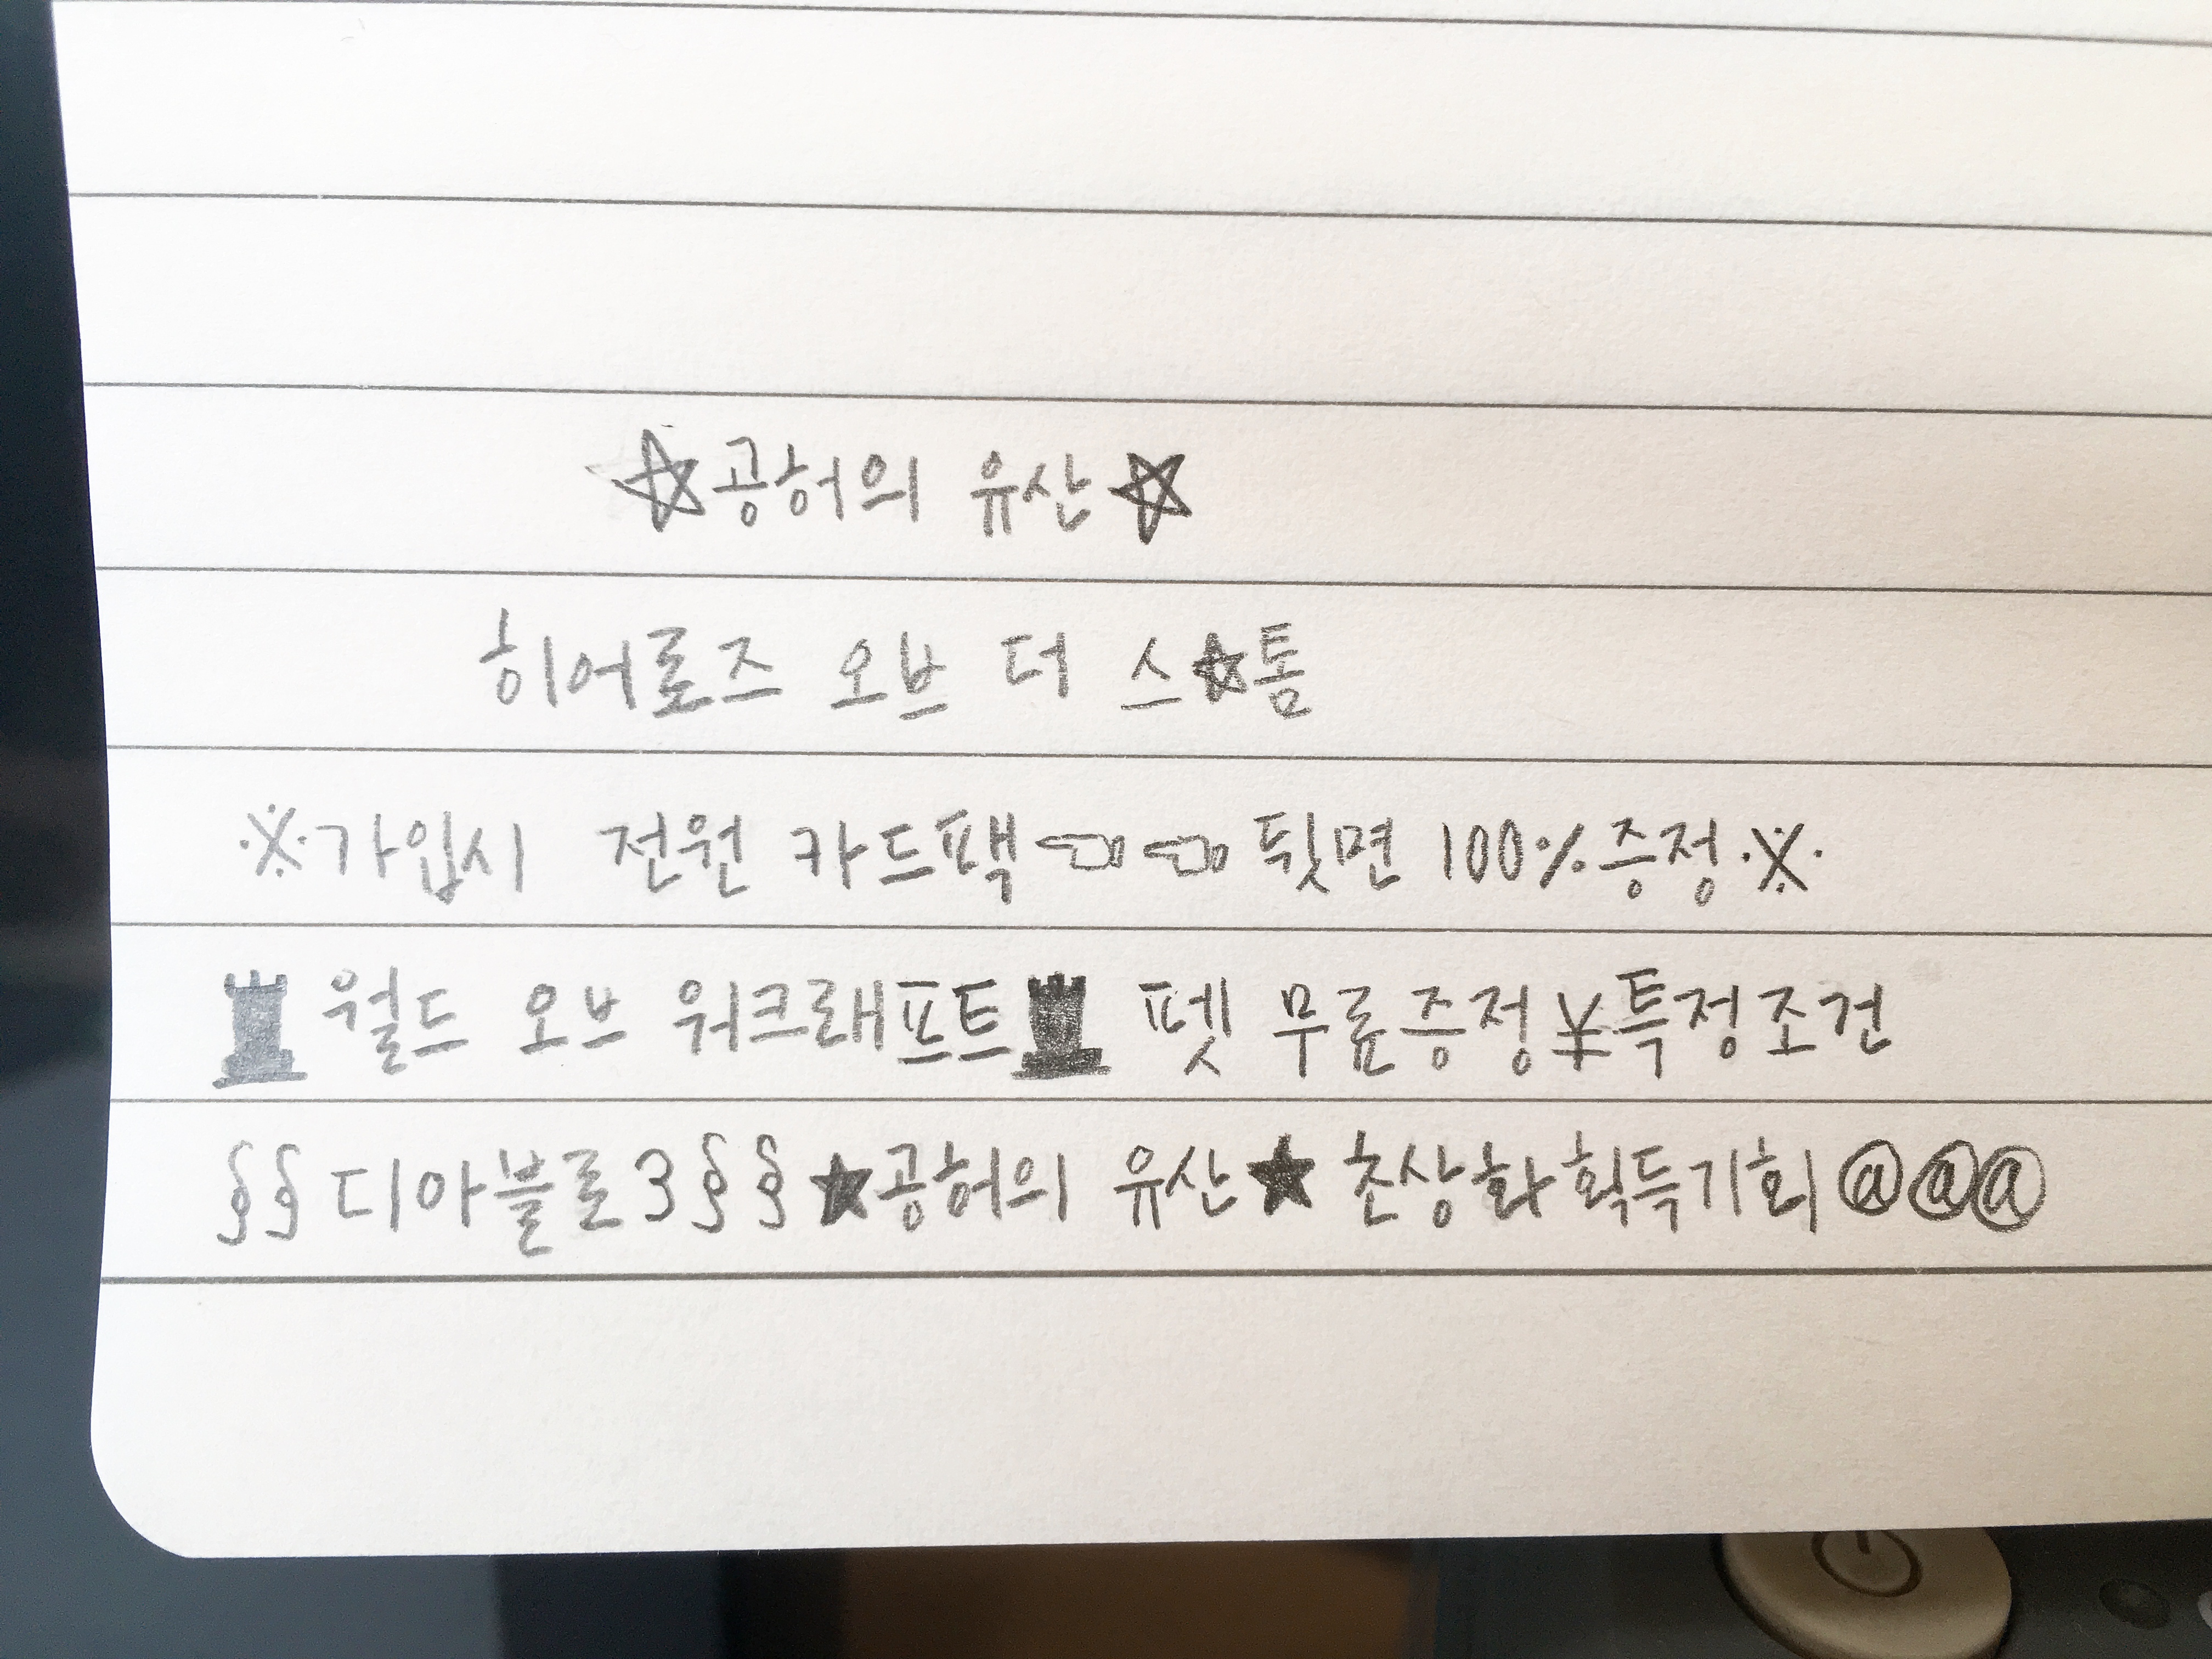 ☆공허의 유산☆
히어로즈 오브 더 스☆톰
※가입시 전원 카드팩☜☜뒷면 100%증정※
♜월드 오브 워크래프트♜ 펫 무료증정¥특정조건
§§디아블로3§§★공허의 유산★ 초상화획득기회@@@